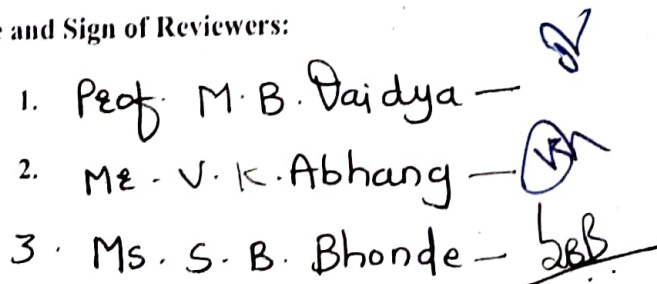 and Sign of Reviewers:
1. Prof. M. B. Vaidya –
2. Mr. V. K. Abhang –
3. Ms. S. B. Bhonde – SBB